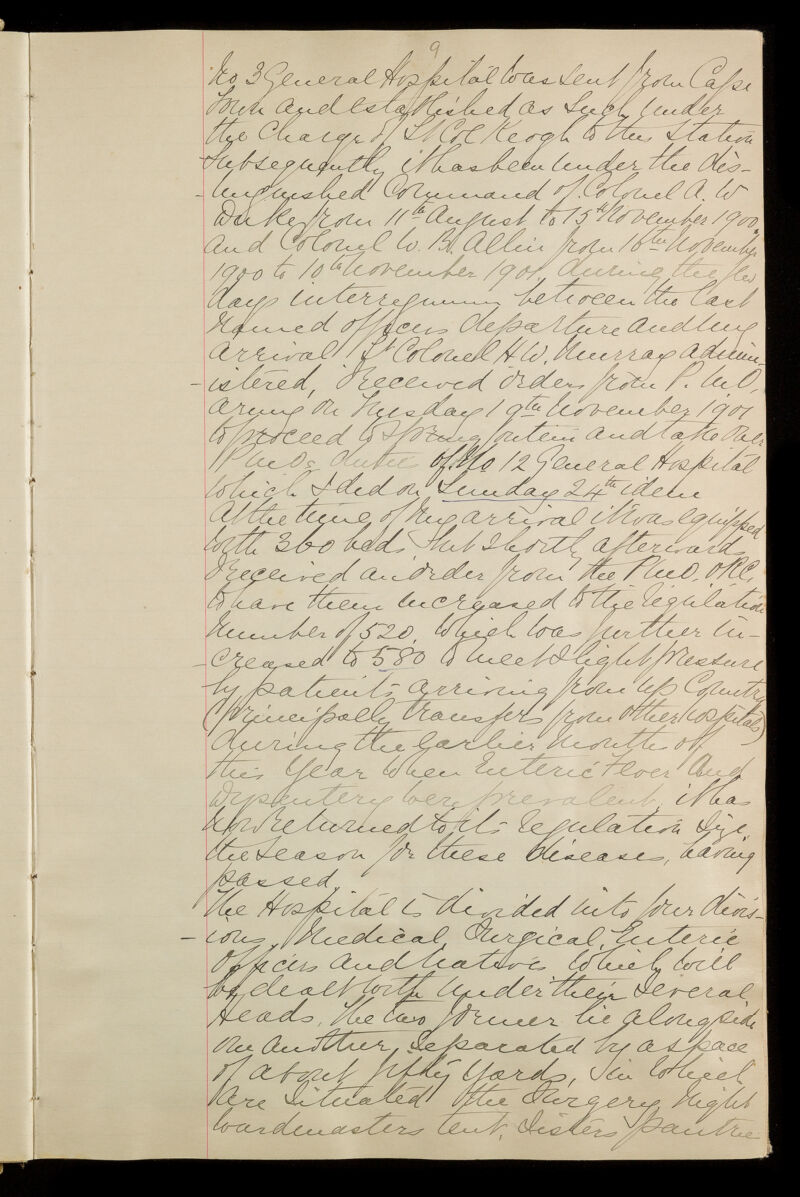 9
No 3 General Hospital was sent from Cape
Town and established as such under
the charge of Lt Col Keogh to this Station
Subsequently it has been under the dis-
-tinguished Command of Colonel A. W
Duke from 11th August to 15th November 1900,
and Colonel W. B. Allin from 16th November
1900 to 10th November 1901, during the few
days interregnum between the last
named officers departure and my
arrival Lt Colonel H. W. Murray admin-
-istered, I received orders from P. M. O,
army on Tuesday 19th November 1901
to proceed to Springfontein and take over
P M Os duties of No 12 General Hospital
which I did on Sunday 24th idem
At the time of my arrival it was equipped
with 360 beds, but shortly afterwards
I received an order from the P.M.O. ORC,
to have them increased to the regulation
number of 520, which was further in-
-creased to 580 to meet slight pressure
by patients arriving from up Country
(principally transfers from other hospitals)
during the earlier months of
this Year when Enteric Fever and
Dysentery were prevalent, it has
now returned to its regulation size,
the season for these diseases, having
passed.
The Hospital is divided into four divis-
-ions, Medical, Surgical, Enteric
Officers and Natives which will
be dealt with under their several
Heads, The two former lie alongside
one another, separated by a space
of about fifty yards, in which
are situated the Surgery, night
wardmasters tent, Sisters pantrie